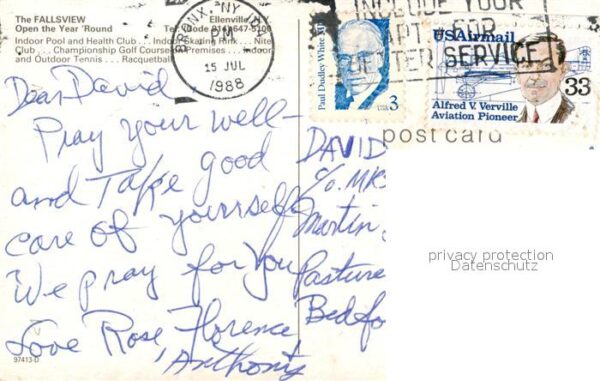 The FALLSVIEW
Open the Year 'Round
Ellenville,
Indoor Pool and Health Club ... Indoor Skating Rink ... Nite
Club ... Championship Golf Course on Premises ... Indoor
and Outdoor Tennis ... Racquetball
BRONX, NY
PM
15 JUL
1988
INCLUDE YOUR
FOR
BETTER SERVICE
Paul Dudley White MD
USA 3
USAirmail
33
Alfred V. Verville
Aviation Pioneer
post card
Dear David
Pray your well-
and Take good
care of yourself
We pray for You
Love Rose, Florence,
Anthony
97413-D
DAVID
c/o MR
Martin
Pasture
Bedfo
privacy protection
Datenschutz